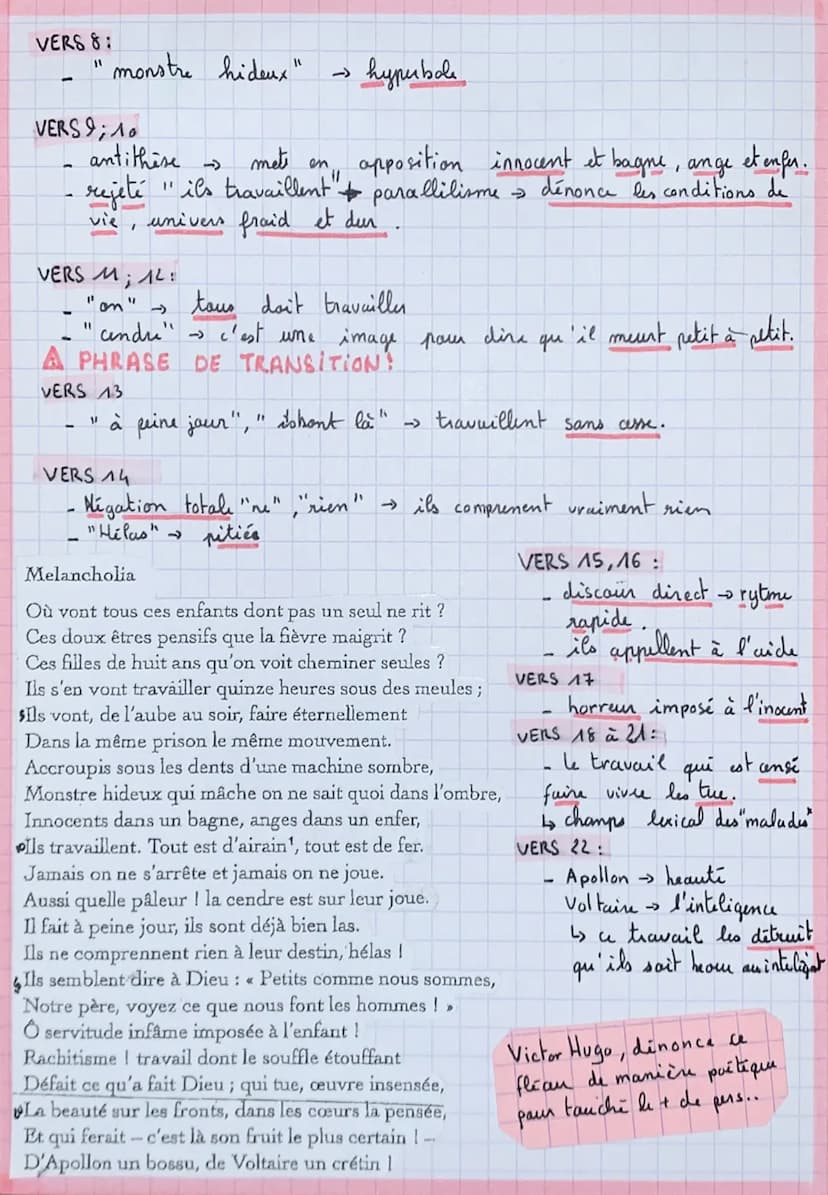 VERS 8 :
- "monstre hideux" → hyperbole
VERS 9 ; 10
- antithèse → mets en apposition innocent et bagne, ange et enfer.
- rejeté "ils travaillent" + parallilisme → dénonce les conditions de
vie, univers froid et dur.
VERS 11 ; 12 :
- "on" → tous doit travailler
- "cendre" → c'est une image pour dire qu'il meurt petit à petit.
⚠ PHRASE DE TRANSITION !
VERS 13
- "à peine jour", " là" → travaillent sans cesse.
VERS 14
- Négation totale "ne", "rien" → ils comprenent vraiment rien
- "Hélas" → pitiés
Melancholia
Où vont tous ces enfants dont pas un seul ne rit ?
Ces doux êtres pensifs que la fièvre maigrit ?
Ces filles de huit ans qu'on voit cheminer seules ?
Ils s'en vont travailler quinze heures sous des meules ;
5Ils vont, de l'aube au soir, faire éternellement
Dans la même prison le même mouvement.
Accroupis sous les dents d'une machine sombre,
Monstre hideux qui mâche on ne sait quoi dans l'ombre,
Innocents dans un bagne, anges dans un enfer,
Ils travaillent. Tout est d'airain¹, tout est de fer.
Jamais on ne s'arrête et jamais on ne joue.
Aussi quelle pâleur ! la cendre est sur leur joue.
Il fait à peine jour, ils sont déjà bien las.
Ils ne comprennent rien à leur destin, hélas !
Ils semblent dire à Dieu : « Petits comme nous sommes,
Notre père, voyez ce que nous font les hommes ! »
Ô servitude infâme imposée à l'enfant !
Rachitisme ! travail dont le souffle étouffant
Défait ce qu'a fait Dieu ; qui tue, œuvre insensée,
La beauté sur les fronts, dans les cœurs la pensée,
Et qui ferait – c'est là son fruit le plus certain ! –
D'Apollon un bossu, de Voltaire un crétin !
VERS 15, 16 :
- discour direct → rytme
rapide.
- ils appellent à l'aide
VERS 17
- horreur imposé à l'inocent
VERS 18 à 21 :
- le travail qui est censé
faire vivre les tue.
↳ champs lexical des "malades"
VERS 22 :
- Apollon → beauté
Voltaire → l'inteligence
↳ ce travail les détruit
qu'ils soit beau ou inteligent
Victor Hugo, dénonce ce
fléau de manière poétique
pour touché le + de pers..